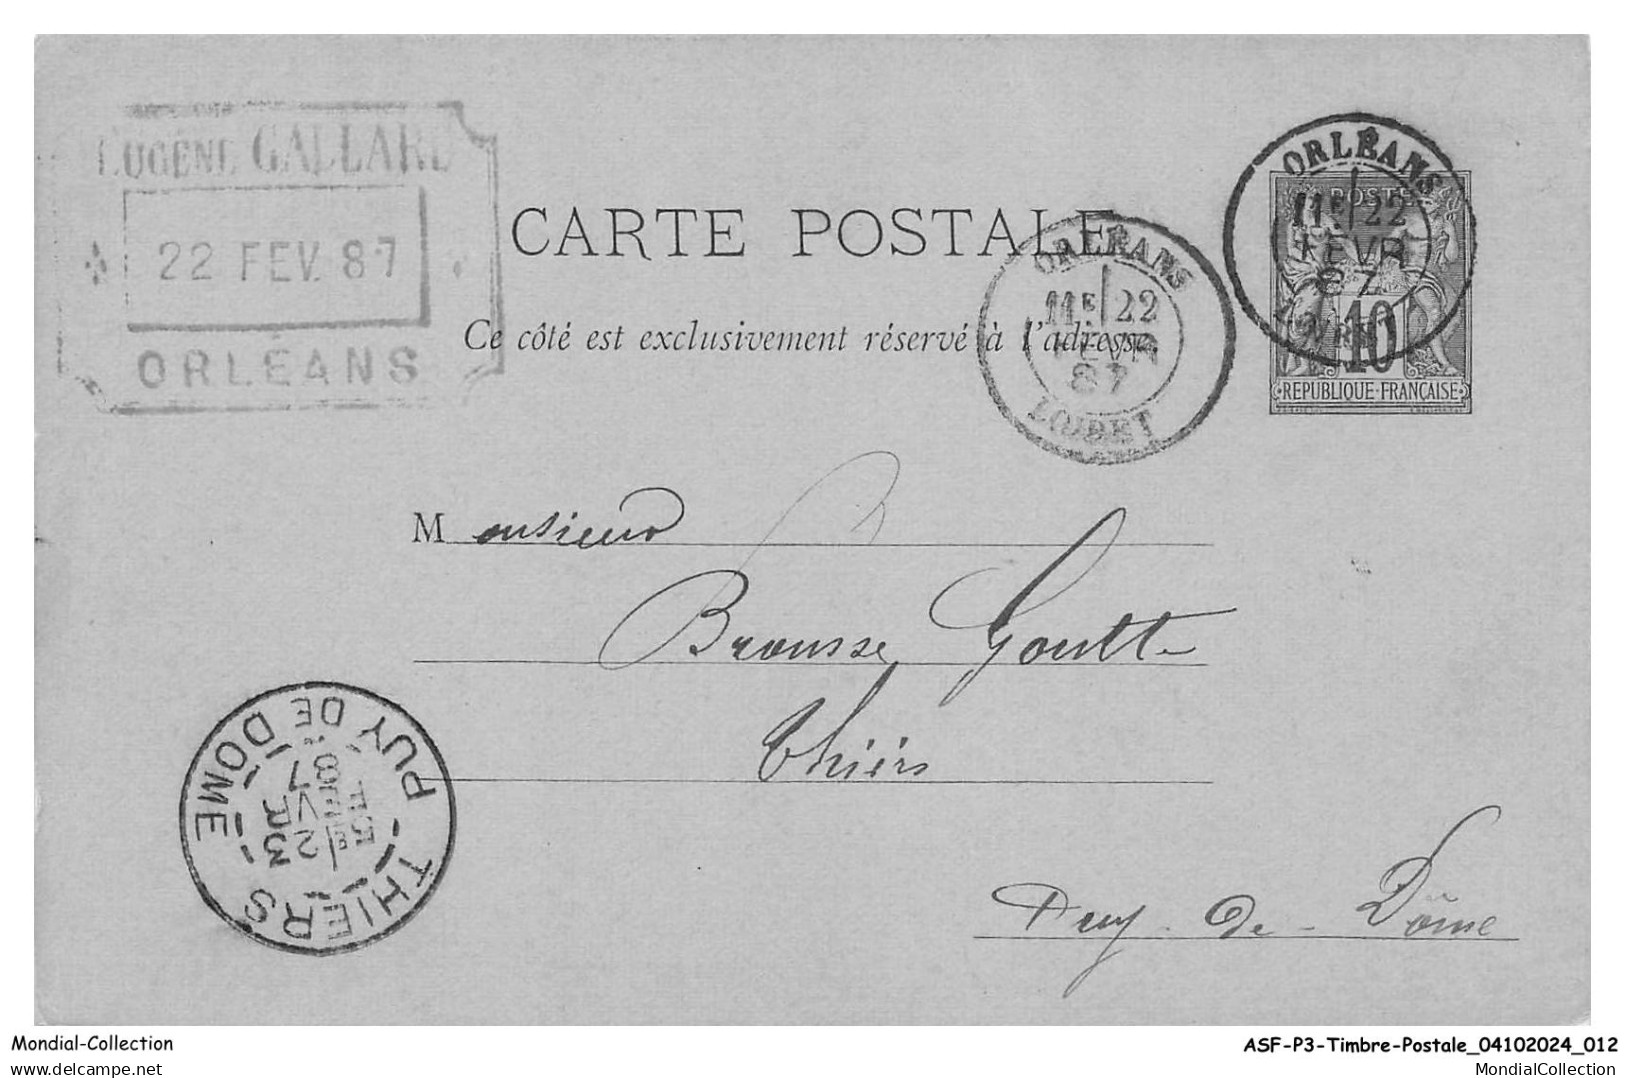 EUGÈNE GALLARD
22 FEV. 87
ORLÉANS
CARTE POSTALE
Ce côté est exclusivement réservé à l'adresse.
ORLÉANS
11E 22
FEVR
87
LOIRET
ORLÉANS
11E 22
FEVR
87
LOIRET
POSTES
10
REPUBLIQUE FRANÇAISE
Monsieur
Brousse Goutte
Thiers
Puy-de-Dôme
THIERS
5E 23
FEVR
87
PUY DE DOME
Mondial-Collection
ASF-P3-Timbre-Postale_04102024_012
MondialCollection.com
MondialCollection